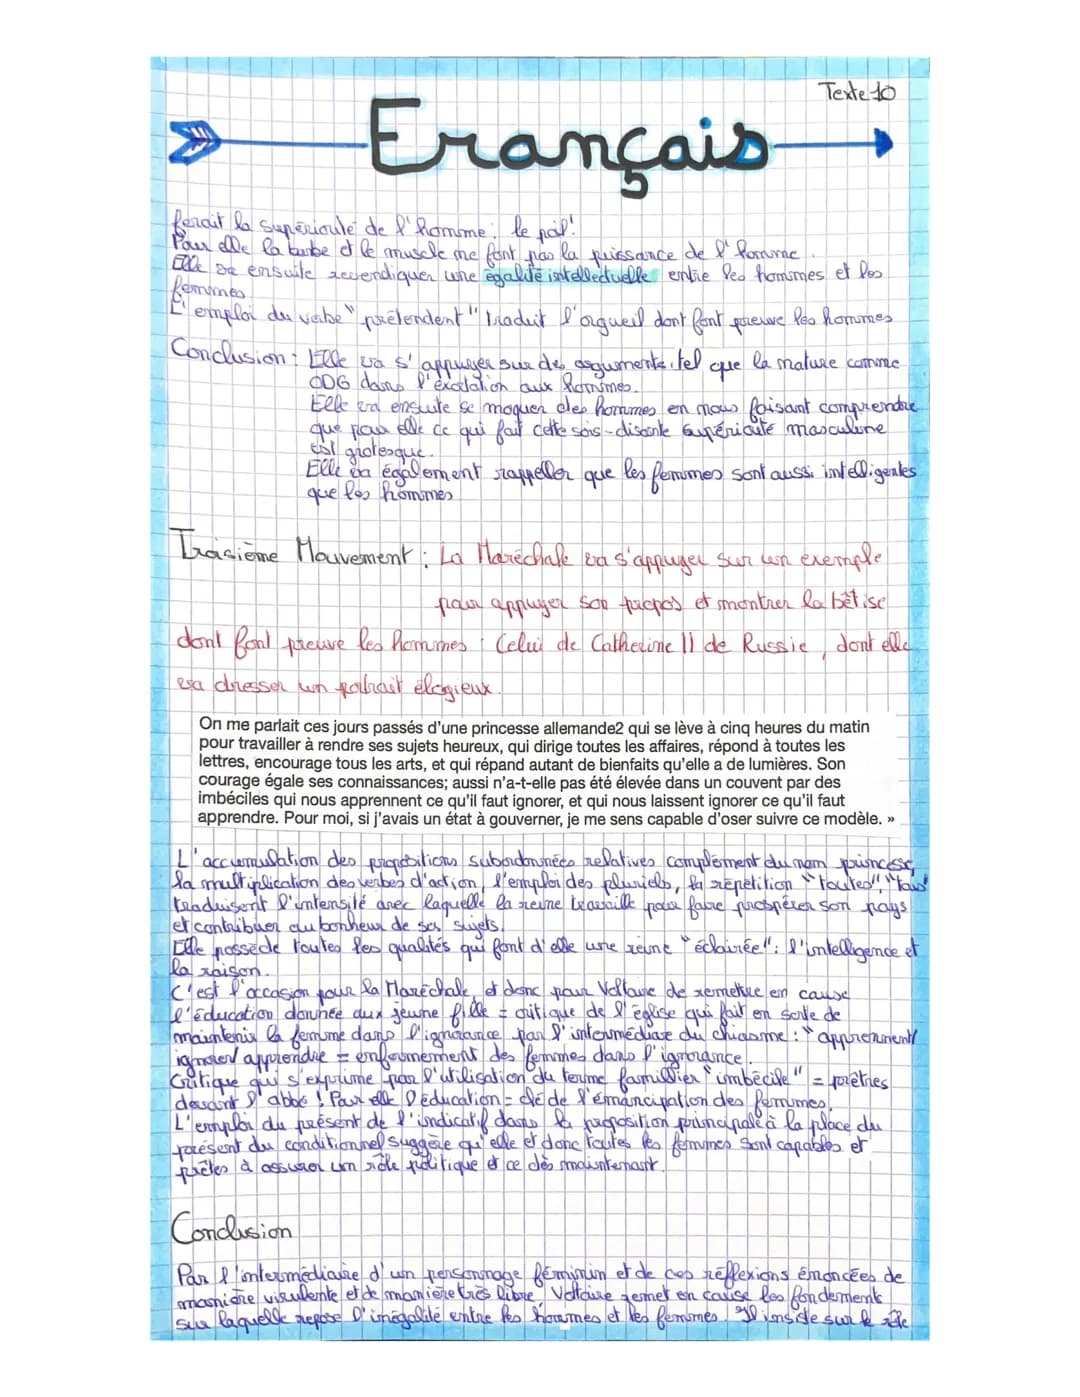 Texte 10
Français
ferait la supériorité de l'homme : le poil !
Pour elle la barbe et le muscle ne font pas la puissance de l'homme.
Elle va ensuite revendiquer une égalité intellectuelle entre les hommes et les
femmes
L'emploi du verbe "prétendent" traduit l'orgueil dont font preuve les hommes
Conclusion : Elle va s'appuyer sur des arguments, tel que la nature comme
ODG dans l'exaltation aux hommes.
Elle va ensuite se moquer des hommes en nous faisant comprendre
que pour elle ce qui fait cette sois-disante supériorité masculine
est grotesque.
Elle va également rappeller que les femmes sont aussi intelligentes
que les hommes
Troisième Mouvement : La Maréchale va s'appuyer sur un exemple
pour appuyer son propos et montrer la bêtise
dont font preuve les hommes : Celui de Catherine II de Russie, dont elle
va dresser un portrait élogieux.
On me parlait ces jours passés d'une princesse allemande2 qui se lève à cinq heures du matin
pour travailler à rendre ses sujets heureux, qui dirige toutes les affaires, répond à toutes les
lettres, encourage tous les arts, et qui répand autant de bienfaits qu'elle a de lumières. Son
courage égale ses connaissances; aussi n'a-t-elle pas été élevée dans un couvent par des
imbéciles qui nous apprennent ce qu'il faut ignorer, et qui nous laissent ignorer ce qu'il faut
apprendre. Pour moi, si j'avais un état à gouverner, je me sens capable d'oser suivre ce modèle. »
L'accumulation des propositions subordonnées relatives complément du nom princesse,
la multiplication des verbes d'action, l'emploi des pluriels, la répétition "toutes", "tous"
traduisent l'intensité avec laquelle la reine travaille pour faire prospérer son pays
et contribuer au bonheur de ses sujets.
Elle possède toutes les qualités qui font d'elle une reine "éclairée" : l'intelligence et
la raison.
C'est l'occasion pour la Maréchale, et donc pour Voltaire de remettre en cause
l'éducation donnée aux jeune fille = critique de l'église qui fait en sorte de
maintenir la femme dans l'ignorance par l'intermédiaire du chiasme : "apprennent/
ignorer/ apprendre = enfermement des femmes dans l'ignorance.
Critique qui s'exprime par l'utilisation du terme famillier "imbécile" = prêtres
devant l'abbé ! Pour elle l'éducation = clé de l'émancipation des femmes.
L'emploi du présent de l'indicatif dans la proposition principale à la place du
présent du conditionnel suggère qu'elle et donc toutes les femmes sont capables et
prêtes à assurer un rôle politique et ce dès maintenant.
Conclusion
Par l'intermédiaire d'un personnage féminin et de ces réflexions énoncées de
manière virulente et de manière très libre, Voltaire remet en cause les fondements
sur laquelle repose l'inégalité entre les hommes et les femmes. Il insiste sur le rôle